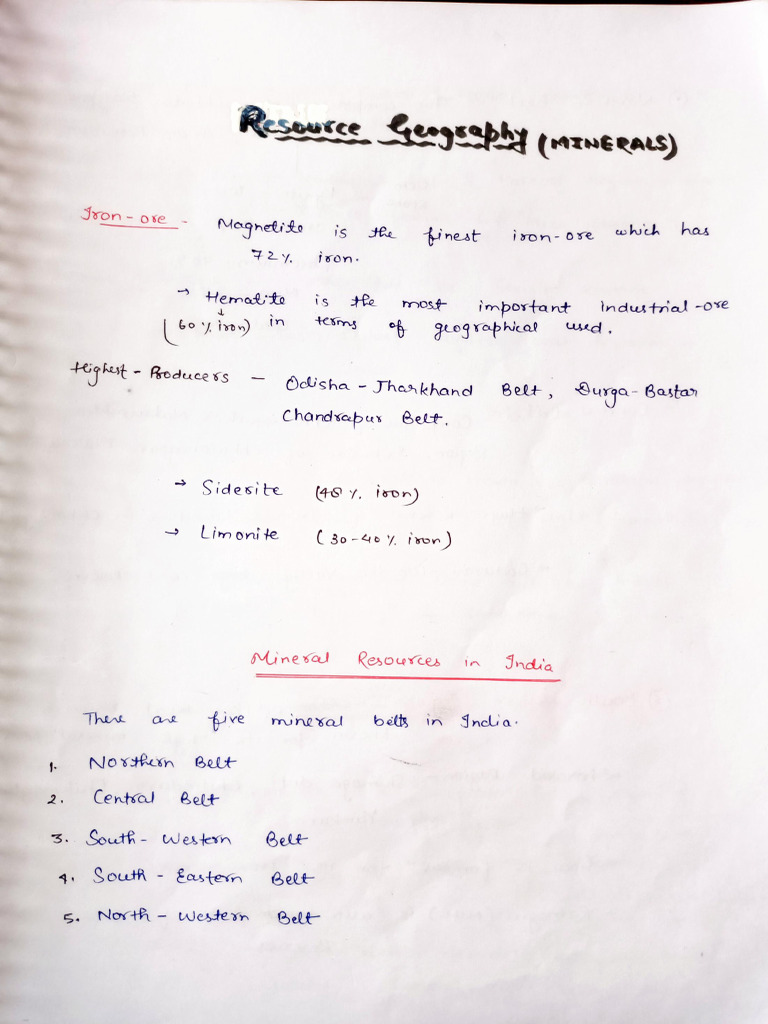 Resource Geography (MINERALS)
Iron-ore - Magnetite is the finest iron-ore which has
72% iron.
→ Hematite is the most important industrial-ore
(60% iron) in terms of geographical used.
Highest-Producers - Odisha-Jharkhand Belt, Durga-Bastar
Chandrapur Belt.
→ Siderite (48% iron)
→ Limonite (30-40% iron)
Mineral Resources in India
There are five mineral belts in India.
1. Northern Belt
2. Central Belt
3. South-Western Belt
4. South-Eastern Belt
5. North-Western Belt